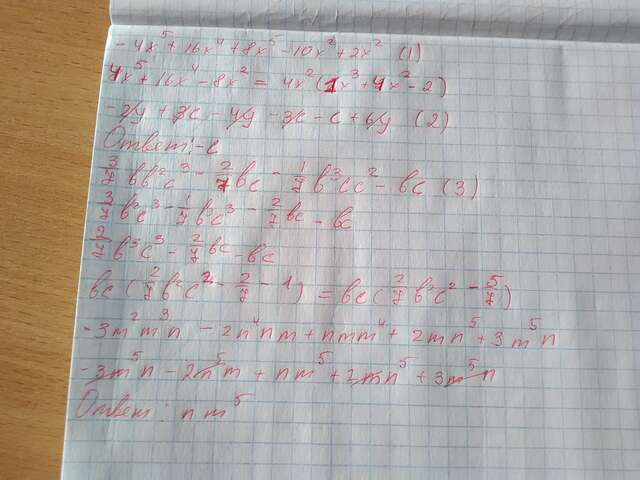 -4x⁵+16x⁴+8x⁵-10x²+2x² (1)
4x⁵+16x⁴-8x² = 4x²(1x³+4x²-2)
-2y+3c-4y-3c-c+6y (2)
Ответ: -c
3/7 bb²c³ - 2/7 bc - 1/7 b³cc² - bc (3)
3/7 b³c³ - 1/7 b³c³ - 2/7 bc - bc
2/7 b³c³ - 2/7 bc - bc
bc(2/7 b²c² - 2/7 - 1) = bc(2/7 b²c² - 5/7)
-3m²m³n - 2n⁴nm + nmm⁴ + 2mn⁵ + 3m⁵n
-3m⁵n - 2n⁵m + nm⁵ + 2mn⁵ + 3m⁵n
Ответ: nm⁵